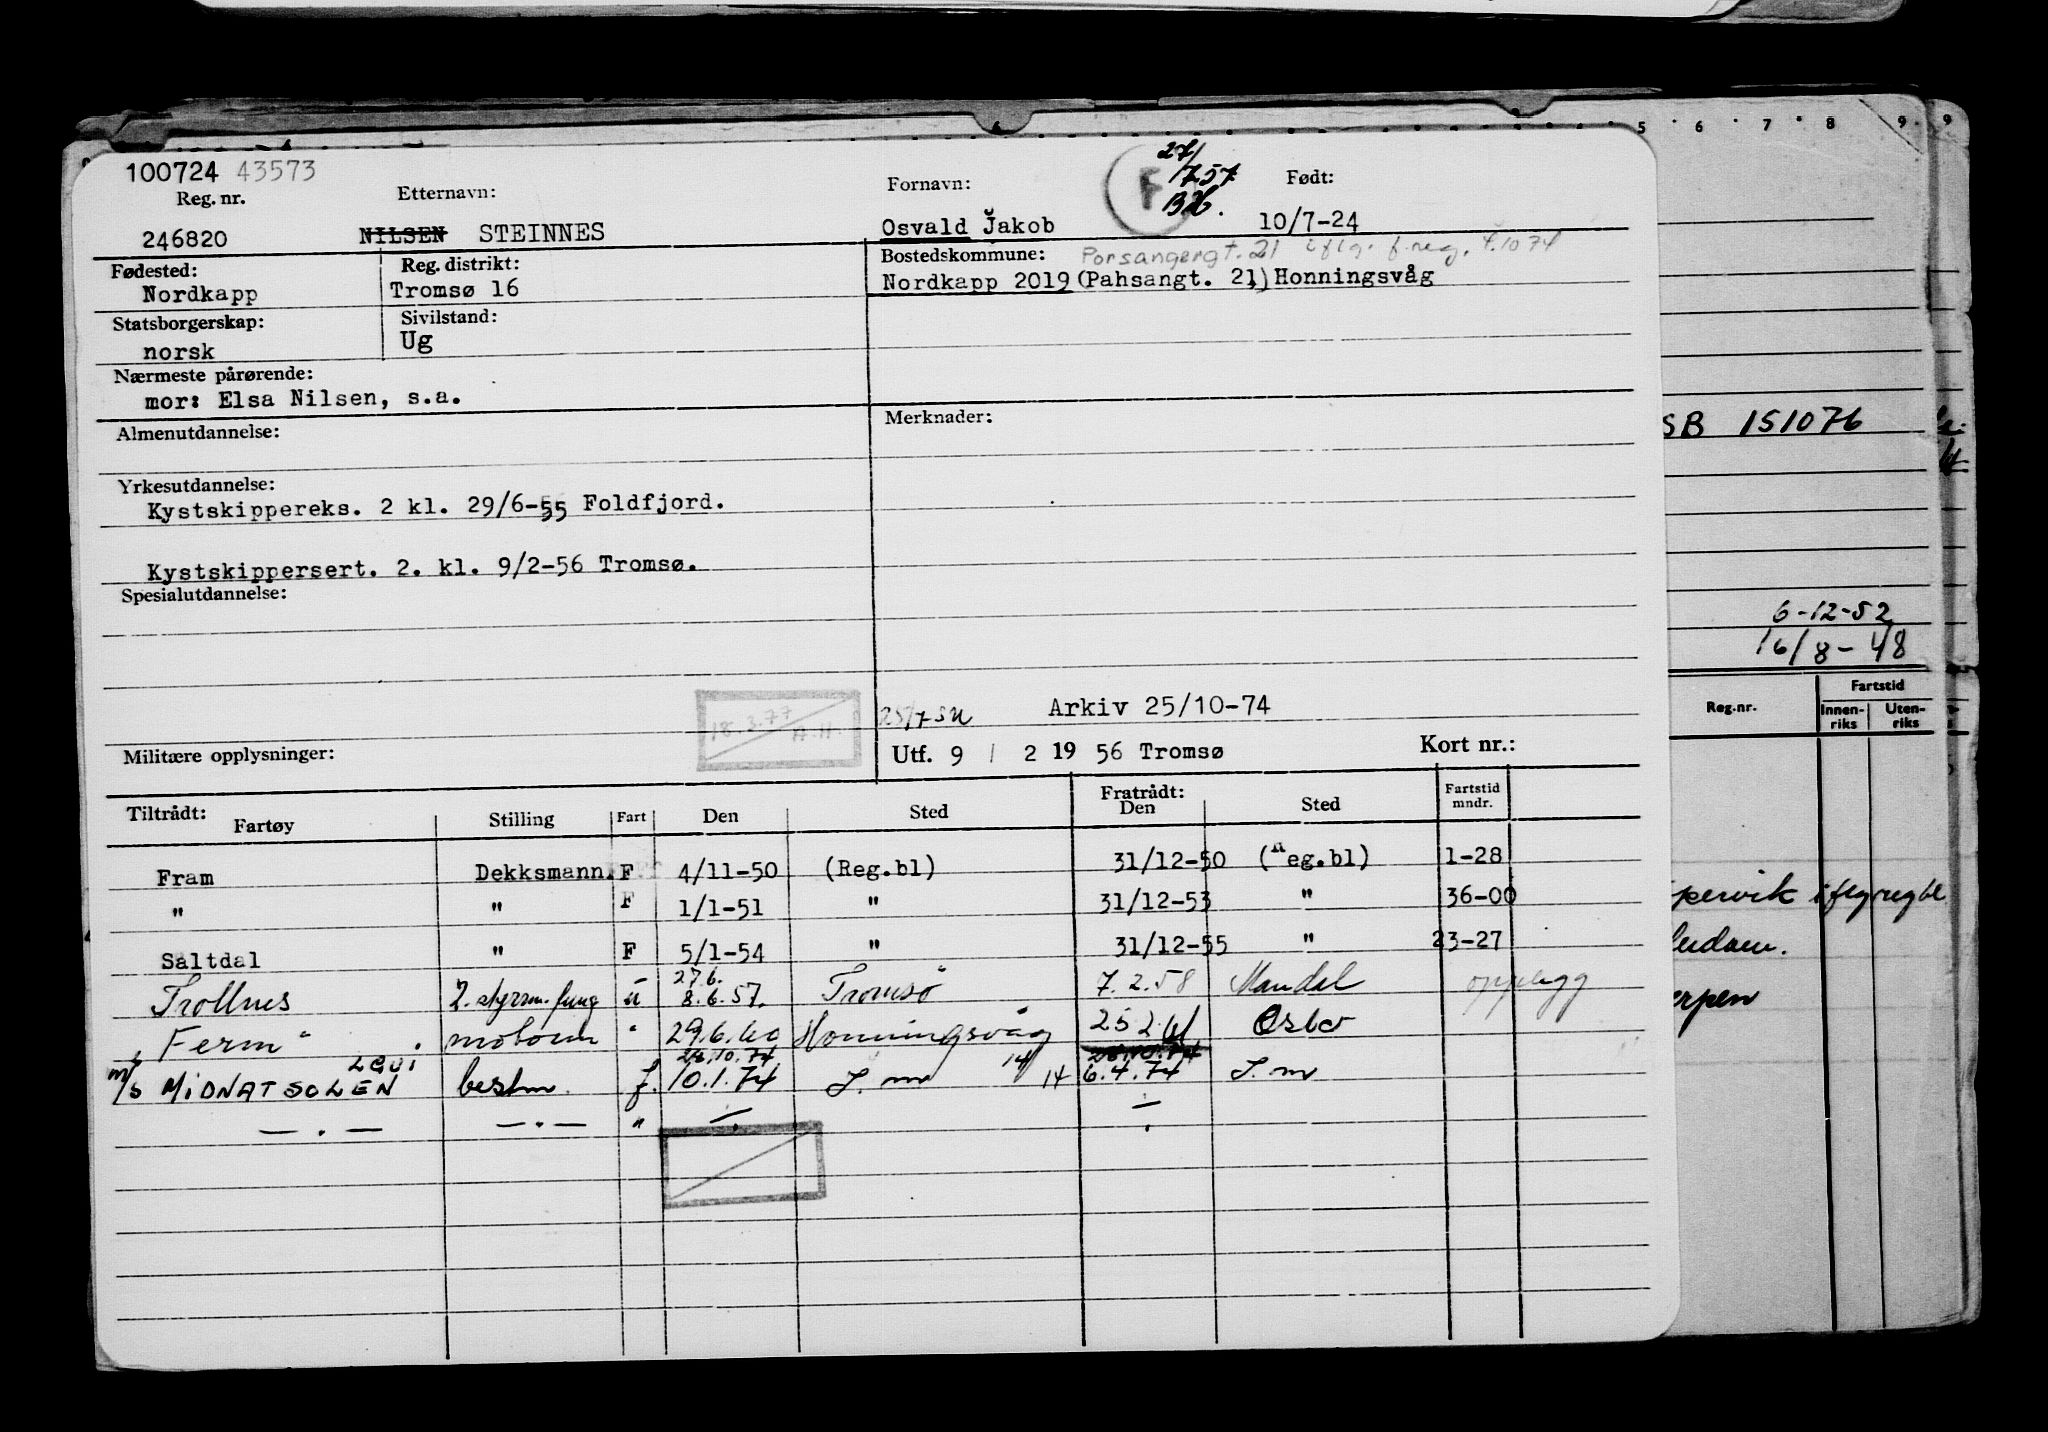 5 6 7 8 9 9
100724 43573
27/
757
F
Reg. nr. Etternavn: Fornavn: Født:
246820 NILSEN STEINNES Osvald Jakob 10/7-24
Fødested: Reg. distrikt: Bostedskommune: Porsangergt. 21 iflg. f.reg. 4.10 74
Nordkapp Tromsø 16 Nordkapp 2019 (Pahsangt. 21) Honningsvåg
Statsborgerskap: Sivilstand:
norsk Ug
Nærmeste pårørende:
mor: Elsa Nilsen, s.a.
Almenutdannelse: Merknader:
SB 151076
Yrkesutdannelse:
Kystskippereks. 2 kl. 29/6-55 Foldfjord.
Kystskippersert. 2. kl. 9/2-56 Tromsø.
Spesialutdannelse:
6-12-52
16/8-48
18.3.77
A.H.
Arkiv 25/10-74
Militære opplysninger: Utf. 9 / 2 19 56 Tromsø Kort nr.:
Reg.nr. Fartstid
Innen-riks Uten-riks
Tiltrådt: Fratrådt: Fartstid
Fartøy Stilling Fart Den Sted Den Sted mndr.
Fram Dekksmann F 4/11-50 (Reg.bl) 31/12-50 ("eg.bl) 1-28
" " F 1/1-51 " 31/12-53 " 36-00
Saltdal " F 5/1-54 " 31/12-55 " 23-27
27.6.
Trollnes 2. styrm. fung u 8.6.57. Tromsø 7.2.58 Mandal opplegg
"Ferm" " 29.6.60 Honningsvåg 25 2 61 Oslo
28.10.74 28.10.74
m/s MIDNATSOLEN bestm. f. 10.1.74 S. m 14 6.4.74 S. m
— . — — . — " — . — .
pervik iflg regbl
erpen